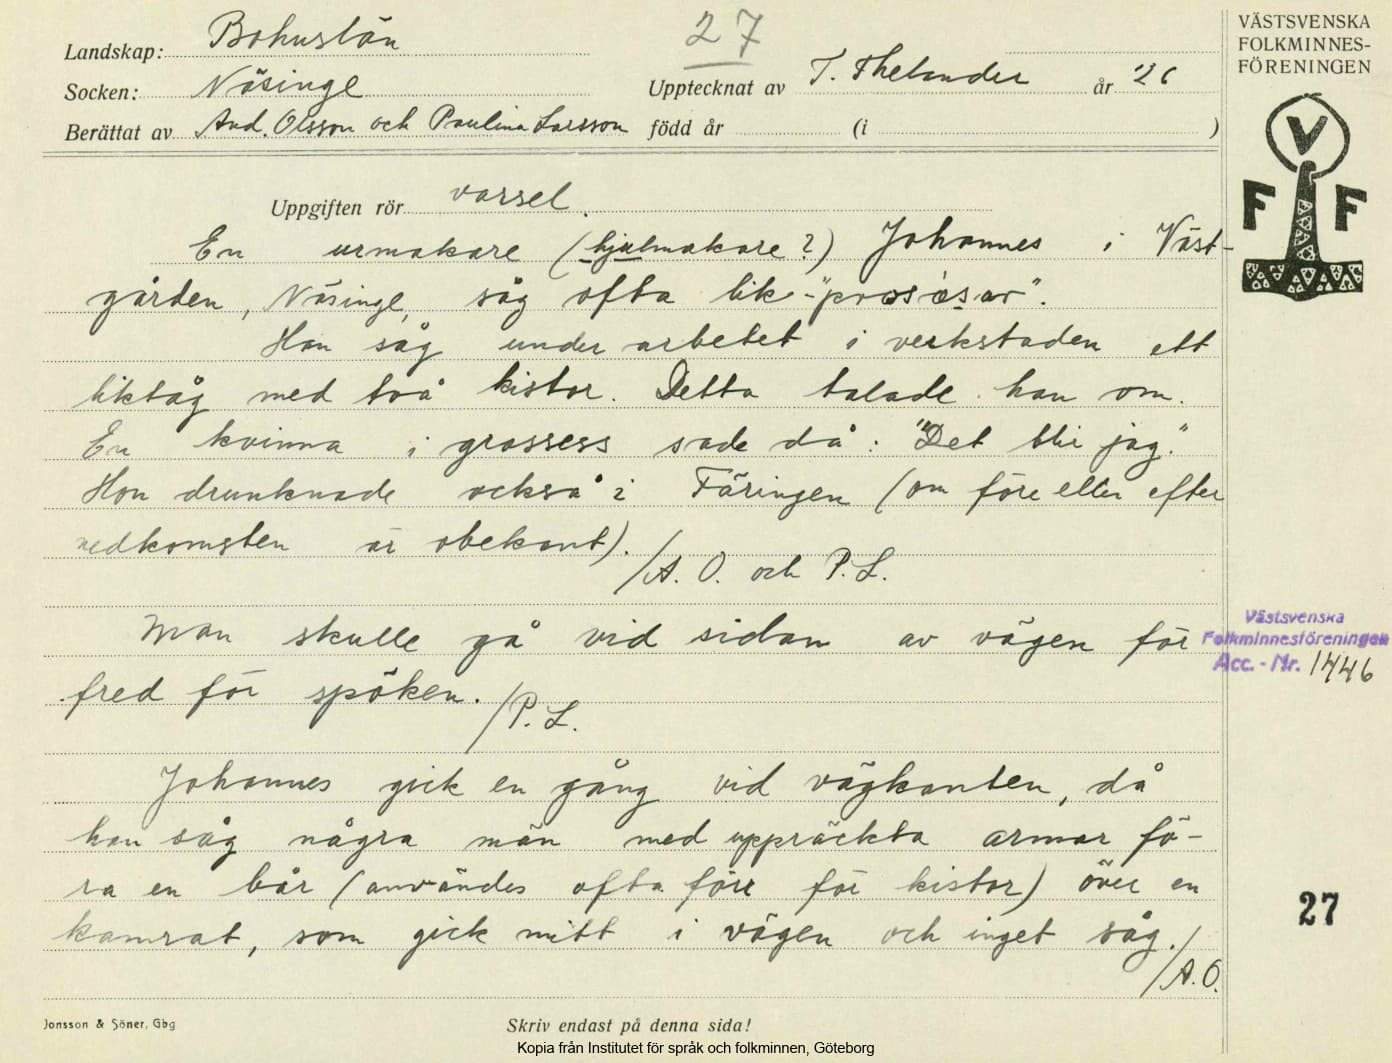 Landskap: Bohuslän
27
Socken: Näsinge
Upptecknat av T. Thelander år '26
Berättat av And. Olsson och Paulina Larsson född år (i )
Uppgiften rör varsel.
En urmakare (hjulmakare?) Johannes i Väst-
gården, Näsinge, såg ofta lik-"prosésar".
Han såg under arbetet i verkstaden ett
liktåg med två kistor. Detta talade han om.
En kvinna i grossess sade då: "Det blir jag".
Hon drunknade också i Färingen (om före eller efter
nedkomsten är obekant).
/A. O. och P. L.
Man skulle gå vid sidan av vägen för
fred för spöken.
/P. L.
Johannes gick en gång vid vägkanten, då
han såg några män med uppräckta armar fö-
ra en bår (användes ofta förr för kistor) över en
kamrat, som gick mitt i vägen och inget såg.
/A. O.
Jonsson & Söner, Gbg
Skriv endast på denna sida!
Kopia från Institutet för språk och folkminnen, Göteborg
VÄSTSVENSKA
FOLKMINNES-
FÖRENINGEN
V
F F
Västsvenska
Folkminnesföreningen
Acc. - Nr. 1446
27